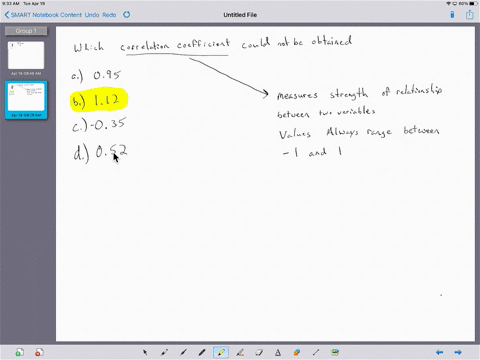 9:33 AM Tue Apr 19
SMART Notebook Content Undo Redo
Untitled File
Group 1
Which correlation coefficient could not be obtained
a.) 0.95
b.) 1.12
c.) -0.35
d.) 0.52
Measures strength of relationship
between two variables
Values Always range between
-1 and 1